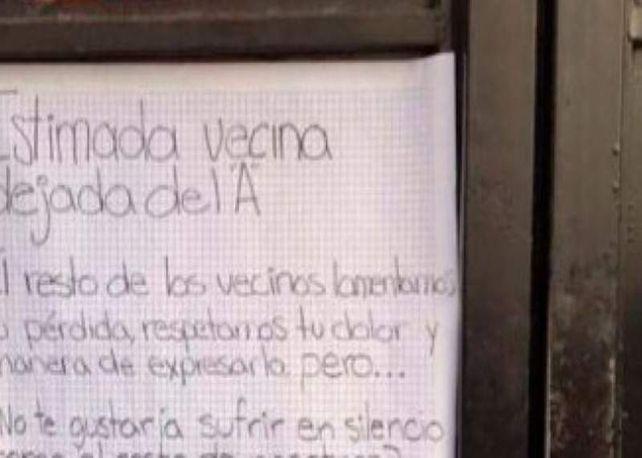 Estimada vecina
dejada del "A"
El resto de los vecinos lamentamos
pérdida, respetamos tu dolor y
manera de expresarlo pero...
No te gustaría sufrir en silencio
como el resto de nosotros?